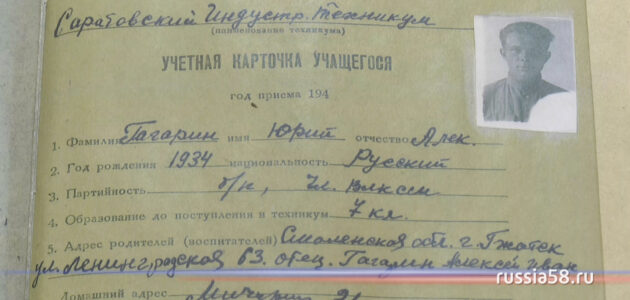 Саратовский Индустр. техникум
(наименование техникума)
УЧЕТНАЯ КАРТОЧКА УЧАЩЕГОСЯ
год приема 194
1. Фамилия Гагарин имя Юрий отчество Алек.
2. Год рождения 1934 национальность Русский
3. Партийность б/п, чл. влксм
4. Образование до поступления в техникум 7 кл.
5. Адрес родителей (воспитателей) Смоленская обл. г. Гжатск
ул. Ленинградская 63. отец. Гагарин Алексей Иван
Домашний адрес Мичурин
russia58.ru